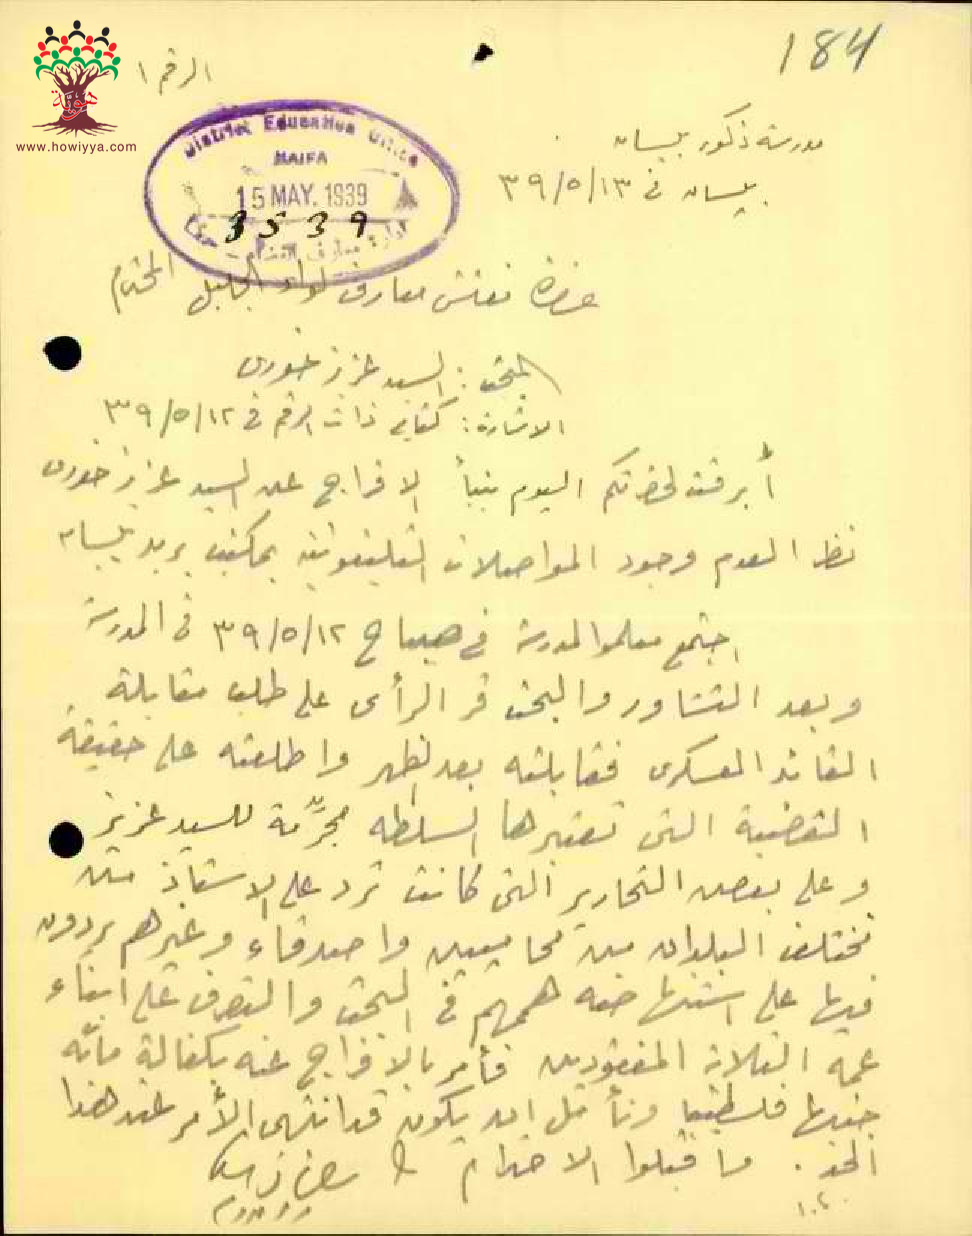 184
الرقم ١
هوية
www.howiyya.com
District Education Office
HAIFA
15 MAY. 1939
3539
مدرسة ذكور بيسان
بيسان في ١٣/٥/٣٩
حضرة مفتش معارف لواء الجليل المحترم
المبحث: السيد عزيز خوري
الاشارة: كتابي ذات الرقم في ١٢/٥/٣٩
أبرقت لحضرتكم اليوم بنبأ الافراج عن السيد عزيز خوري
نظرا لعدم وجود المواصلات التليفونية بمكتب بريد بيسان
اجتمع معلموا المدرسة في صباح ١٢/٥/٣٩ في المدرسة
وبعد التشاور والبحث قر الرأى على طلب مقابلة
القائد العسكرى فقابلته بعد الظهر واطلعته على حقيقة
القضية التى تعتبرها السلطه مجرّمة للسيد عزيز
وعلى بعض التحارير التى كانت ترد على الاستاذ من
مختلف البلدان من محاميين واصدقاء وغيرهم يردون
فيها على استنهاضه هممهم في البحث والتعرف على ابناء
عمه الثلاثة المفقودين فأمر بالافراج عنه بكفالة مائة
جنيها فلسطينيا ونأمل ان يكون قد انتهى الأمر عند هذا
الحد. وا قبلوا الاحترام